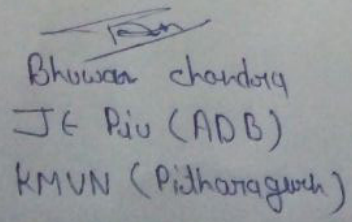 Bhuwan chandra
JE Piu (ADB)
KMVN (Pitharagarh)